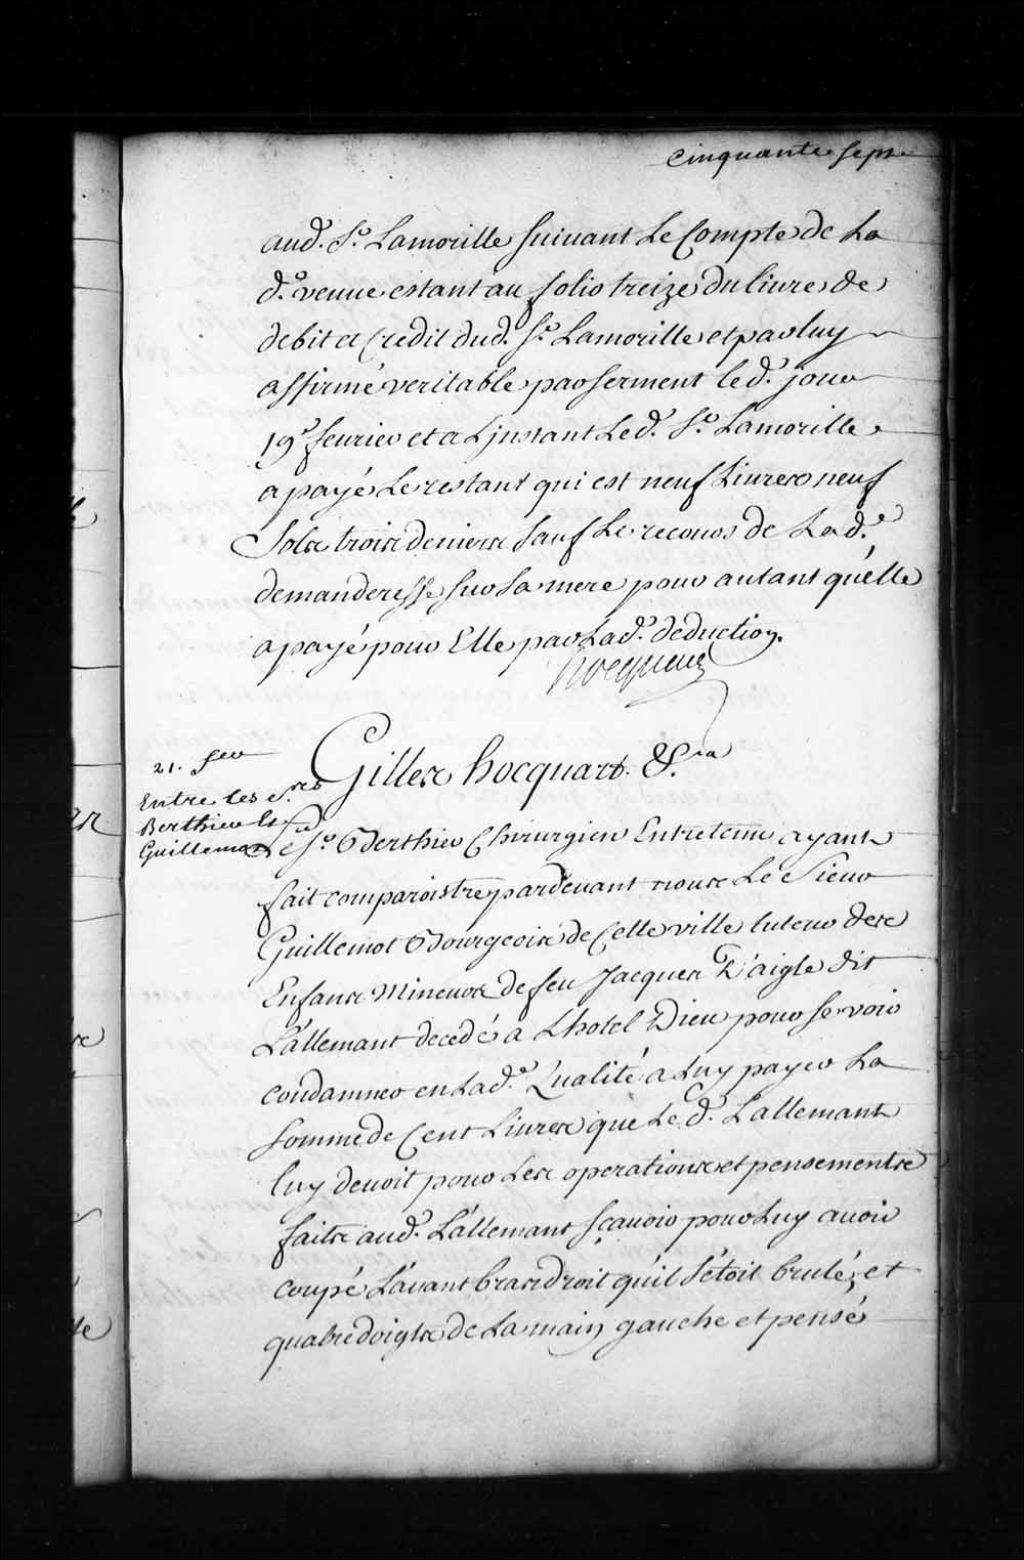 cinquante sept
aud. Sr. Lamorille suivant Le Compte de La
de. veuue estant au folio treize du liure de
debit et Credit dud. Sr. Lamorille et par luy
affirmé veritable par serment led. jour
19e feurier et a Ljnstant Led. Sr. Lamorille
a payé Le restant qui est neuf Liures neuf
Sols trois deniers sauf Le recours de Lade.
demanderesse sur sa mere pour autant qu'elle
a payé pour Elle par Lade. deduction.
hocquart
21. feur
Gilles hocquart. &ra
Entre les Srs
Berthier Et
Guillemot
Le Sr. Berthier Chirurgien Entretenu ayant
fait comparoistre pardeuant nous Le Sieur
Guillemot Bourgeois de Cette ville tuteur des
Enfans Mineurs de feu Jacques D'aigle dit
L'allemant decedé a Lhotel Dieu pour se voir
condamner en Lade. Qualité a Luy payer La
somme de Cent Liures que Le d. Lallemant
luy deuoit pour Les operations et pensements
faits aud. L'allemant sçauoir pour Luy auoir
coupé L'auant bras droit qu'il s'étoit brulé, et
quatre doigts de La main gauche et pensé